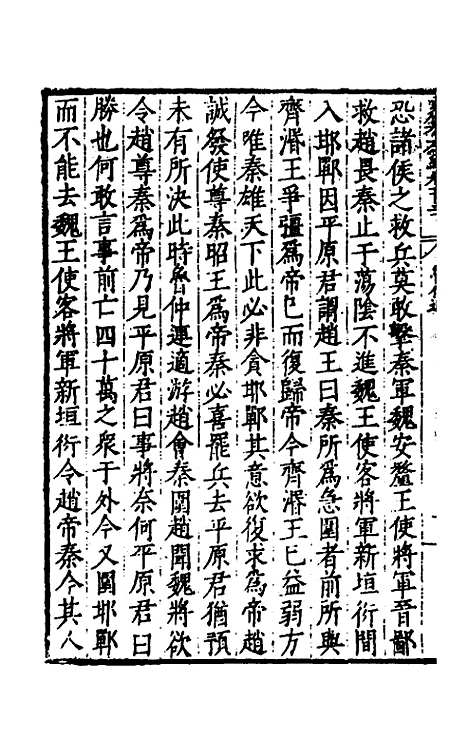 恐諸侯之救兵莫敢擊秦軍魏安釐王使將軍晉鄙
救趙畏秦止于蕩陰不進魏王使客將軍新垣衍間
入邯鄲因平原君謂趙王曰秦所為急圍者前所與
齊湣王爭彊為帝已而復歸帝今齊湣王已益弱方
今唯秦雄天下此必非貪邯鄲其意欲復求為帝趙
誠發使尊秦昭王為帝秦必喜罷兵去平原君猶預
未有所決此時魯仲連適游趙會秦圍趙聞魏將欲
令趙尊秦為帝乃見平原君曰事將奈何平原君曰
勝也何敢言事前亡四十萬之衆于外今又圍邯鄲
而不能去魏王使客將軍新垣衍令趙帝秦今其人